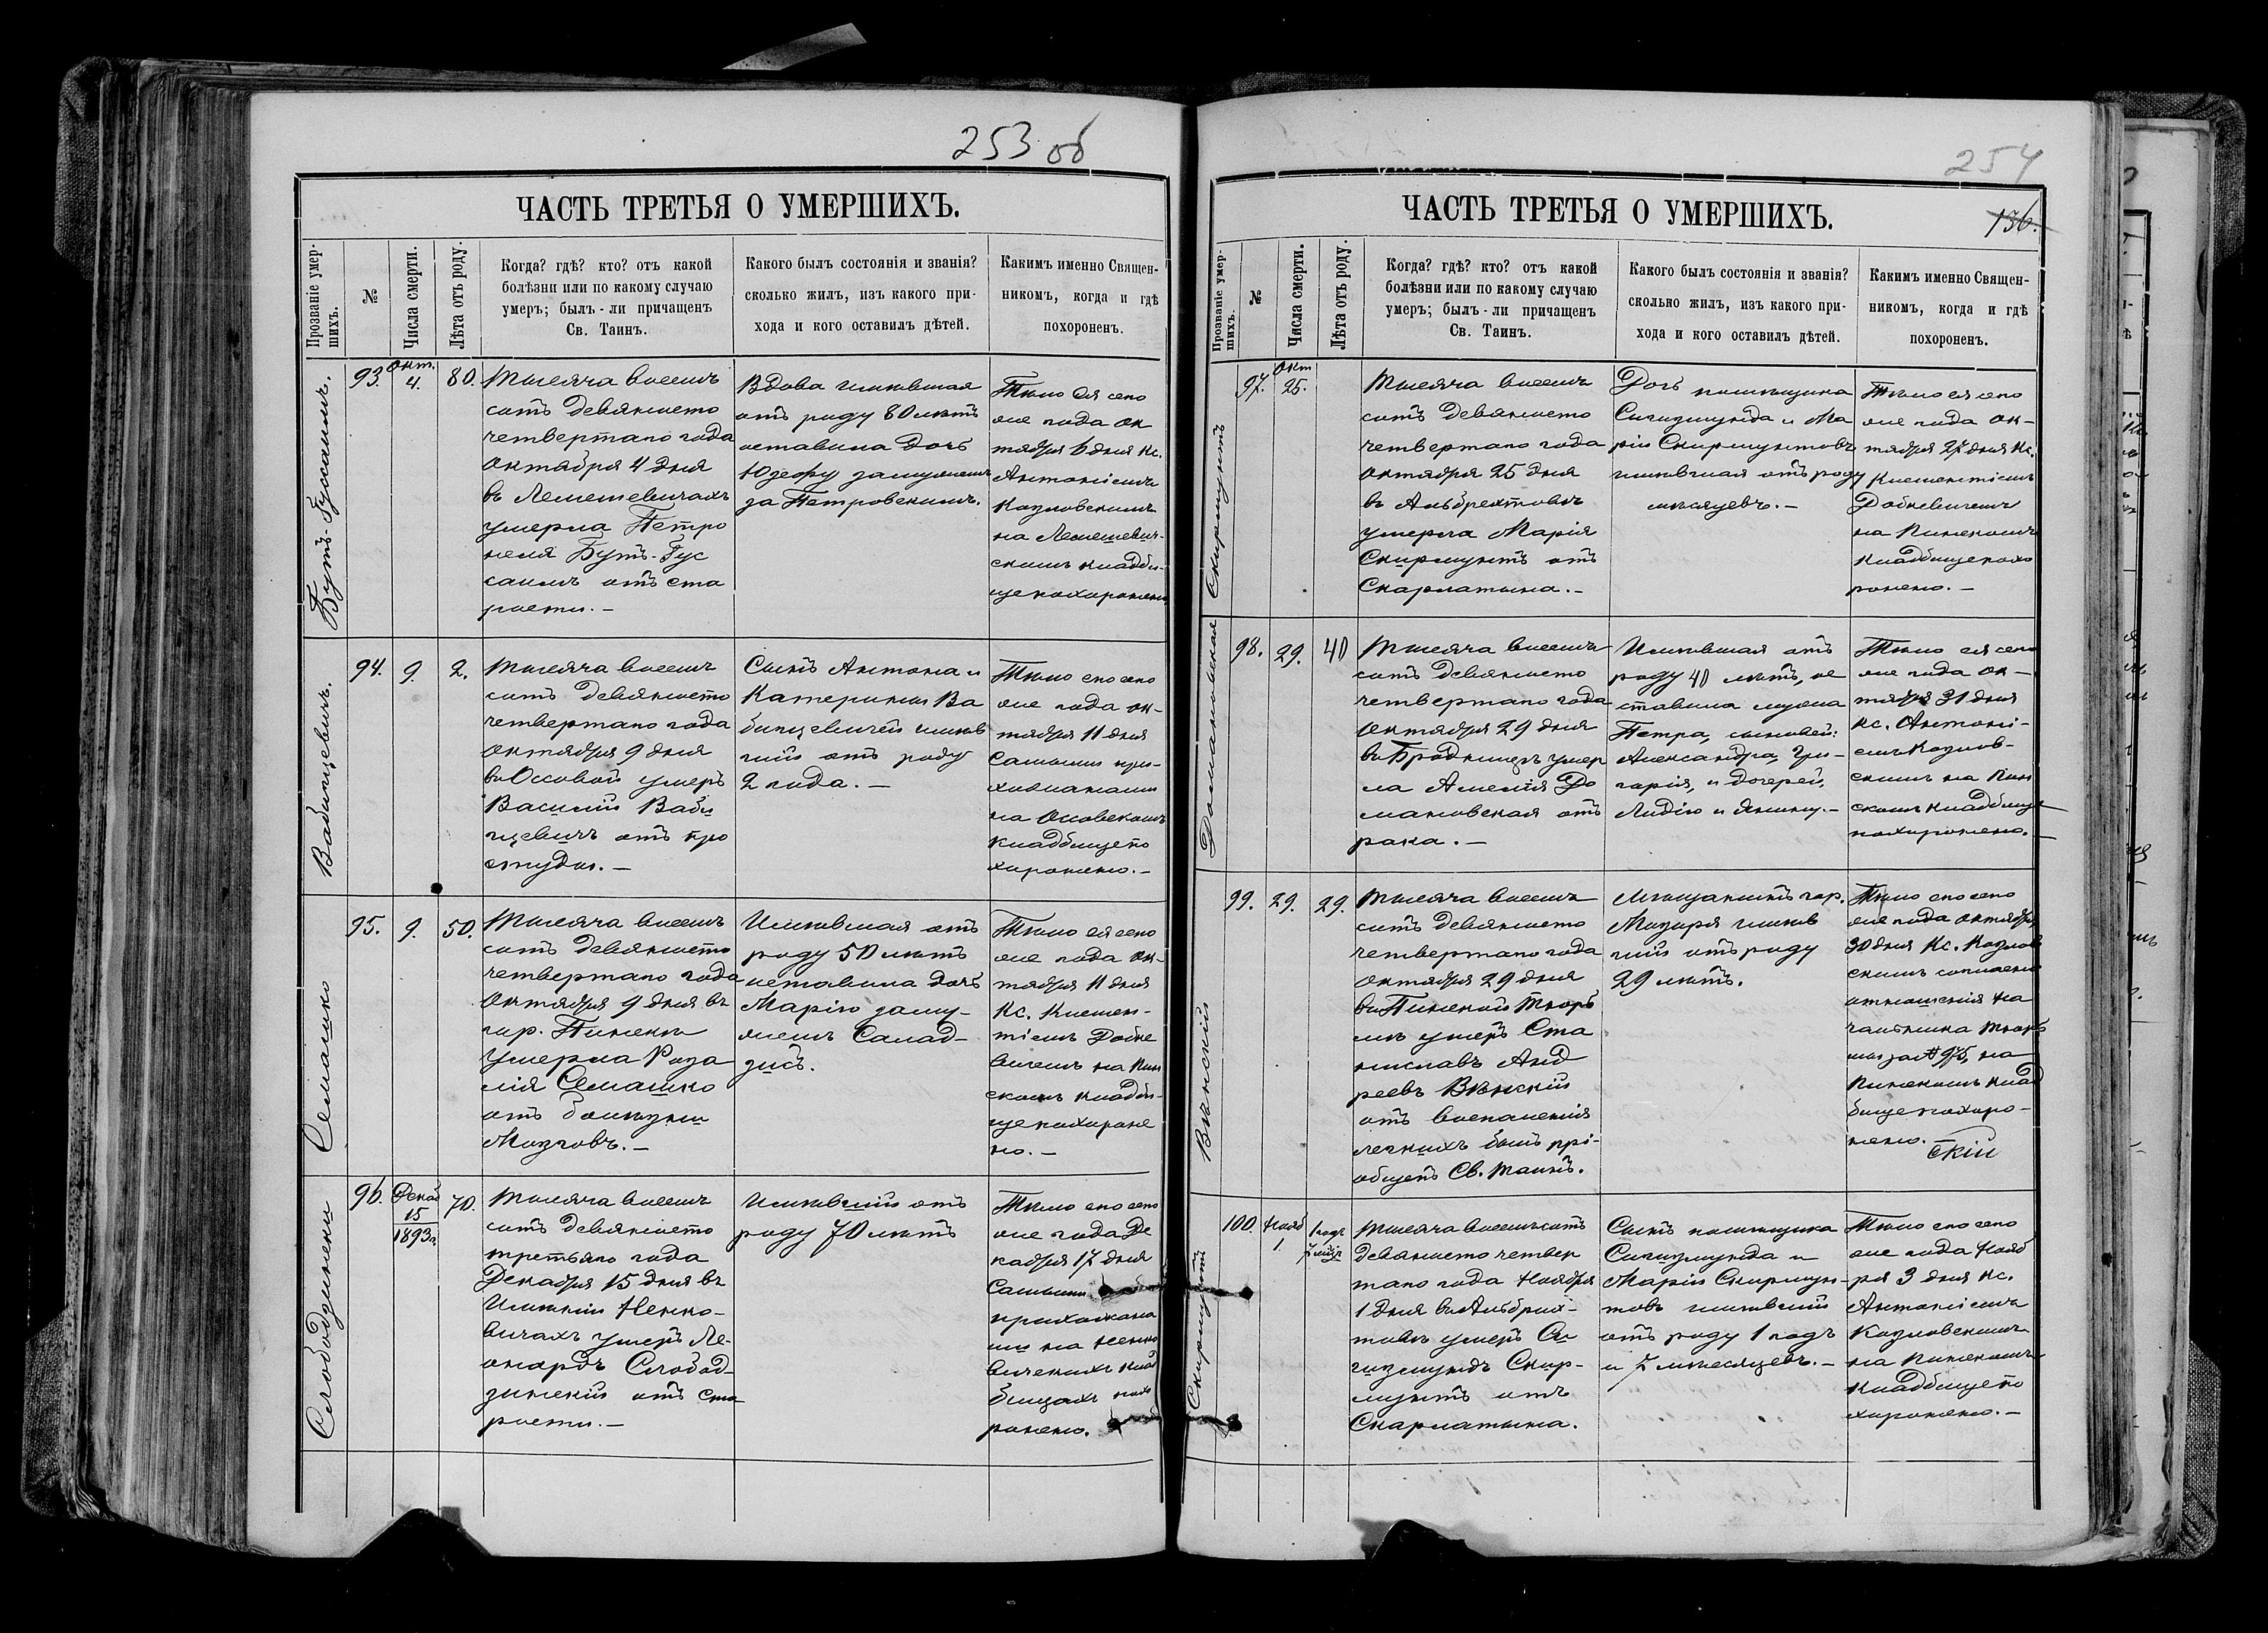 253 об
ЧАСТЬ ТРЕТЬЯ О УМЕРШИХЪ.
Прозваніе умер-
шихъ.
№
Числа смерти.
Лѣта отъ роду.
Когда? гдѣ? кто? отъ какой
болѣзни или по какому случаю
умеръ; былъ-ли причащенъ
Св. Таинъ.
Какого былъ состоянія и званія?
сколько жилъ, изъ какого при-
хода и кого оставилъ дѣтей.
Какимъ именно Священ-
никомъ, когда и гдѣ
похороненъ.
Бутъ-Гусаимъ.
93.
Окт.
4.
80.
Тысяча восемь
сотъ девяносто
четвертаго года
Октября 4 дня
въ Лемешевичахъ
умерла Петро
неля Бутъ-Гус
саимъ отъ ста
рости.-
Вдова жившая
отъ роду 80 лѣтъ
оставила дочь
Юзефу замужемъ
за Петровскимъ.
Тѣло ея сего
же года Ок
тября 6 дня Кс.
Антоніемъ
Козловскимъ
на Лемешевич-
скомъ кладби-
ще похоронено
Вабищевичъ.
94.
9.
2.
Тысяча восемь
сотъ девяносто
четвертаго года
Октября 9 дня
въ Оссовой умеръ
Василій Ваби
щевичъ отъ про
студы.-
Сынъ Антона и
Катерины Ва
бищевичей жив
шій отъ роду
2 года.-
Тѣло его сего
же года Ок-
тября 11 дня
Самыми при-
хожанами
на Оссовскомъ
кладбище по
хоронено.-
Семашко
95.
9.
50.
Тысяча восемь
сотъ девяносто
четвертаго года
Октября 9 дня въ
гор. Пинскѣ
умерла Роза
лія Семашко
отъ болѣзни
Мозговъ.-
Жившая отъ
роду 50 лѣтъ
оставила дочь
Марію заму-
жемъ Салад-
зисъ.
Тѣло ея сего
же года Ок-
тября 11 дня
Кс. Клемен-
тіемъ Добке
вичемъ на Пин
скомъ кладби-
ще похороне
но.-
Слободзинскій
96.
Декаб
15
1893 г.
70.
Тысяча восемь
сотъ девяносто
третьяго года
Декабря 15 дня въ
Жижкій Ненко-
вичахъ умеръ Ле-
онардъ Слобод-
зинскій отъ ста
рости.-
Жившій отъ
роду 70 лѣтъ
Тѣло его сего
же года Де
кабря 17 дня
Самыми
прихожана
ми на Ненко
вичскихъ клад
бищахъ похо
ронено.
254
136.
ЧАСТЬ ТРЕТЬЯ О УМЕРШИХЪ.
Прозваніе умер-
шихъ.
№
Числа смерти.
Лѣта отъ роду.
Когда? гдѣ? кто? отъ какой
болѣзни или по какому случаю
умеръ; былъ-ли причащенъ
Св. Таинъ.
Какого былъ состоянія и званія?
сколько жилъ, изъ какого при-
хода и кого оставилъ дѣтей.
Какимъ именно Священ-
никомъ, когда и гдѣ
похороненъ.
Скирмунтъ
97.
Окт
25.
Тысяча восемь
сотъ девяносто
четвертаго года
Октября 25 дня
въ Альбрехтовѣ
умерла Марія
Скирмунтъ отъ
Скарлатына.-
Дочь помѣщика
Сигизмунда и Ма
ріи Скирмунтовъ
жившая отъ роду
мѣсяцевъ.-
Тѣло ея сего
же года Ок-
тября 27 дня Кс.
Клементіемъ
Добкевичемъ
на Пинскомъ
кладбище похо
ронено.-
Домановская
98.
29.
40
Тысяча восемь
сотъ девяносто
четвертаго года
Октября 29 дня
въ Бродницѣ умер
ла Амелія До
мановская отъ
рака.-
Жившая отъ
роду 40 лѣтъ, ос
ставила мужа
Петра, сыновей:
Александра, Гри-
горія, и дочерей,
Лидію и Янину.-
Тѣло ея сего
же года Ок-
тября 31 дня
Кс. Антоні-
емъ Козлов-
скимъ на Пин
скомъ кладбище
похоронено.-
Вѣнскій
99.
29.
29.
Тысяча восемь
сотъ девяносто
четвертаго года
Октября 29 дня
въ Пинской Тюрь
мѣ умеръ Ста
ниславъ Анд
реевъ Вѣнскій
отъ воспаленія
легкихъ былъ прі-
общенъ Св. Таинъ.
Мѣщанинъ гор.
Мозыря жив
шій отъ роду
29 лѣтъ.
Тѣло его сего
же года Октября
30 дня Кс. Козлов
скимъ согласно
отношенія На
чальника Тюрь
мы за № 975, на
Пинскомъ клад
бище похоро-
нено.
скій
Скирмунтъ
100.
Нояб
1.
1 годъ
7 мѣсяц
Тысяча восемьсотъ
девяносто четвер
таго года Ноября
1 дня въ Альбрих-
товѣ умеръ Си
гизмундъ Скир-
мунтъ отъ
Скарлатына.
Сынъ помѣщика
Сигизмунда и
Маріи Скирмун-
товъ жившій
отъ роду 1 годъ
и 7 мѣсяцевъ.-
Тѣло его сего
же года Нояб
ря 3 дня Кс.
Антоніемъ
Козловскимъ
на Пинскомъ
кладбище по
хоронено.-